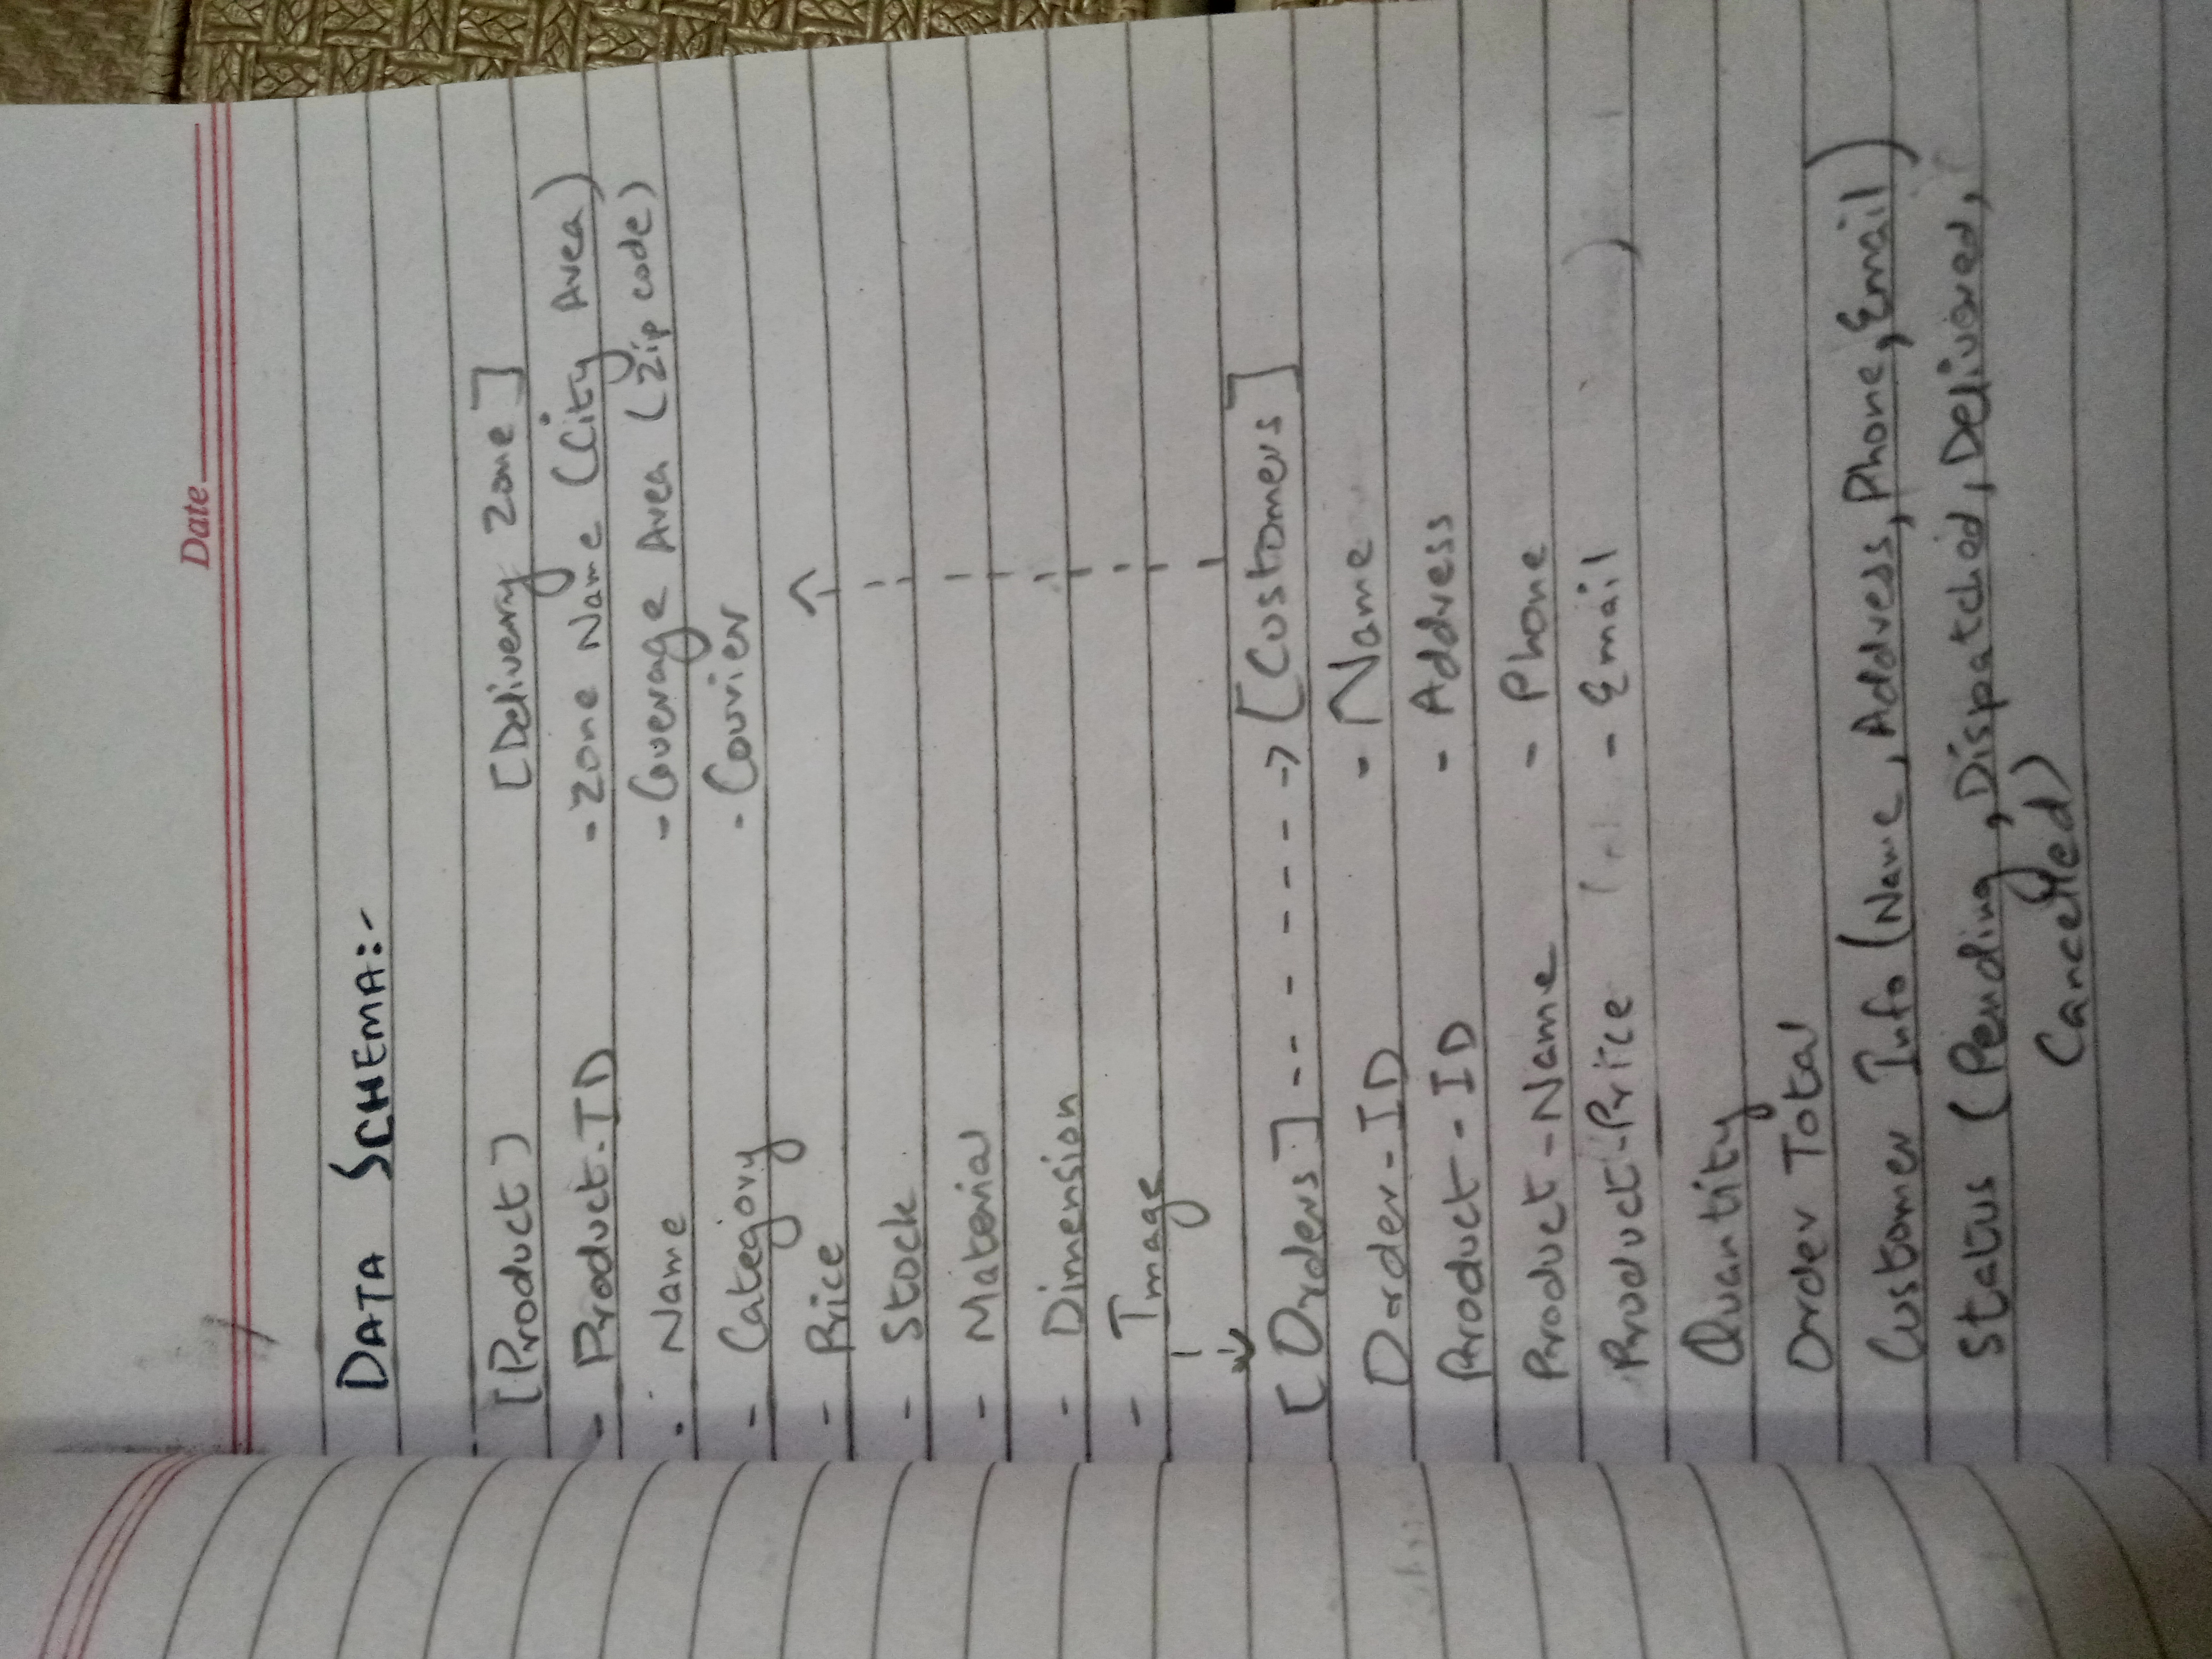 Date
DATA SCHEMA:-
[Product]
- Product-ID
- Name
- Category
- Price
- Stock
- Material
- Dimension
- Image
[Delivery Zone]
- Zone Name (City Area)
- Coverage Area (Zip code)
- Courier
[Orders] -- - - - - -> [Customers]
Order-ID
Product-ID
Product-Name
Product-Price
Quantity
Order Total
Customer Info (Name, Address, Phone, Email)
Status (Pending, Dispatched, Delivered,
Cancelled)
- Name
- Address
- Phone
- Email